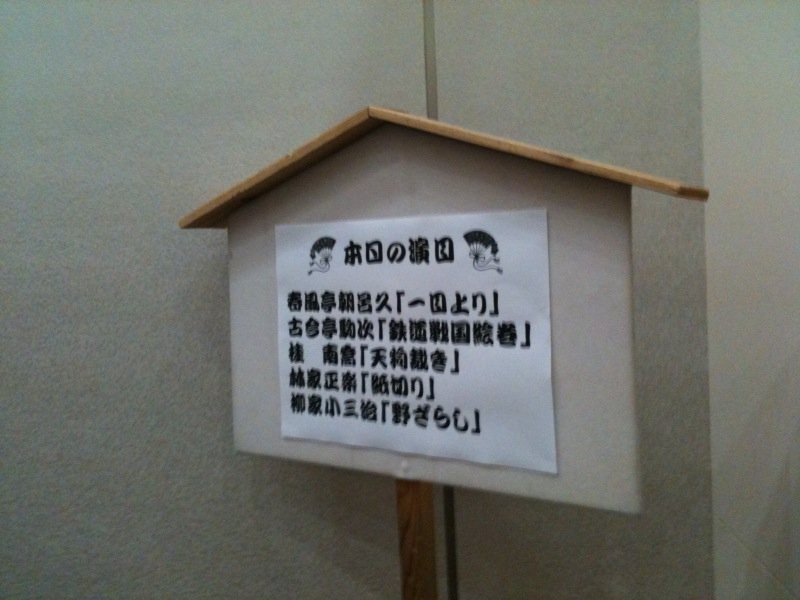 本日の演目
春風亭朝呂久「一目上り」
古今亭駒次「鉄道戦国絵巻」
桂　南喬「天狗裁き」
林家正楽「紙切り」
柳家小三治「野ざらし」